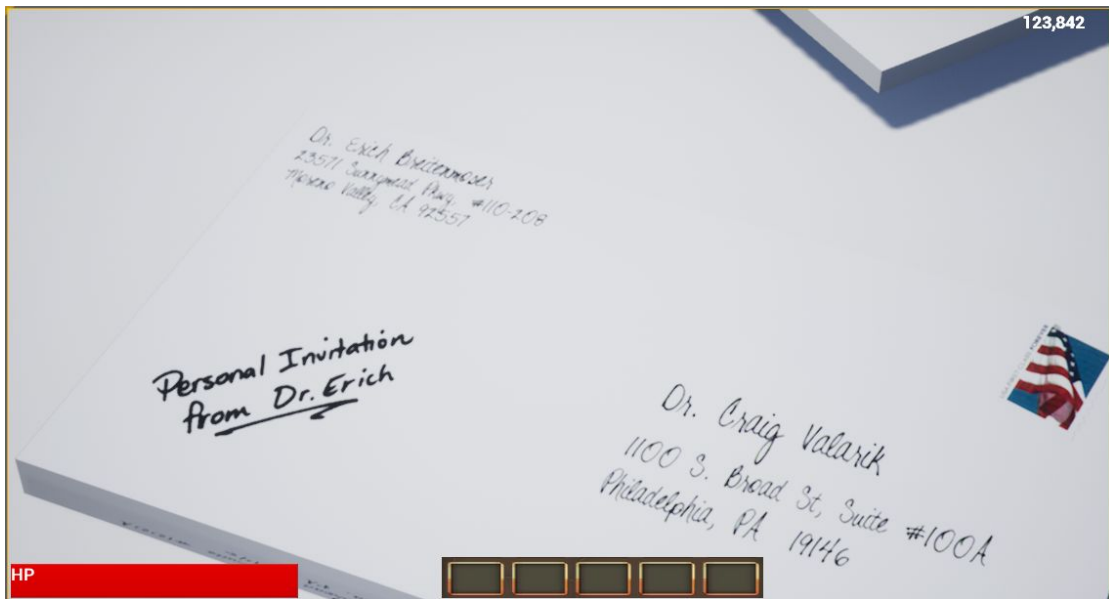 123,842
Dr. Erich Breitenmoser
23571 Sunnymead Pkwy. #110-208
Moreno Valley, CA 92557
Personal Invitation
from Dr. Erich
Dr. Craig Valarik
1100 S. Broad St, Suite #100A
Philadelphia, PA 19146
HP